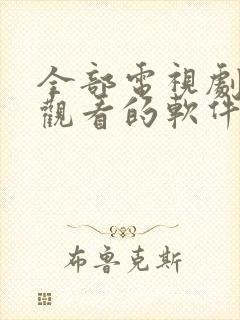 全部電視劇
觀看的軟件
布魯克斯